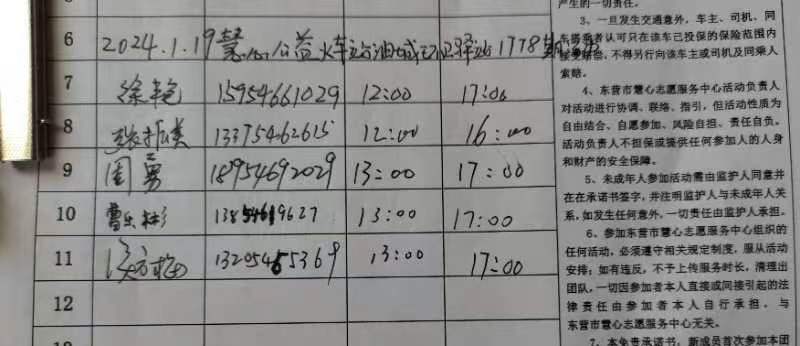 产生的一切责任。
6 2024.1.19慧心公益火车站油城驿站1778期
7 徐艳 15954661029 12:00 17:00
8 张振英 13375462615 12:00 16:00
9 周勇 18954692029 13:00 17:00
10 13854619627 13:00 17:00
11 13205465369 13:00 17:00
12
3、一旦发生交通意外，车主、司机、同
车乘者认可只在该车已投保的保险范围内
接受赔偿，不得另行向该车主或司机及同乘人
索赔。
4、东营市慧心志愿服务中心活动负责人
对活动进行协调、联络、指引，但活动性质为
自由结合、自愿参加、风险自担、责任自负。
活动负责人不担保或提供任何参加人的人身
和财产的安全保障。
5、未成年人参加活动需由监护人同意并
在在承诺书签字，并注明监护人与未成年人关
系，如发生任何意外，一切责任由监护人承担。
6、参加东营市慧心志愿服务中心组织的
任何活动，必须遵守相关规定制度，服从活动
安排；如有违反，不予上传服务时长，清理出
团队，一切因参加者本人直接或间接引起的法
律责任由参加者本人自行承担，与
东营市慧心志愿服务中心无关。
7、本免责承诺书，新成员首次参加本团